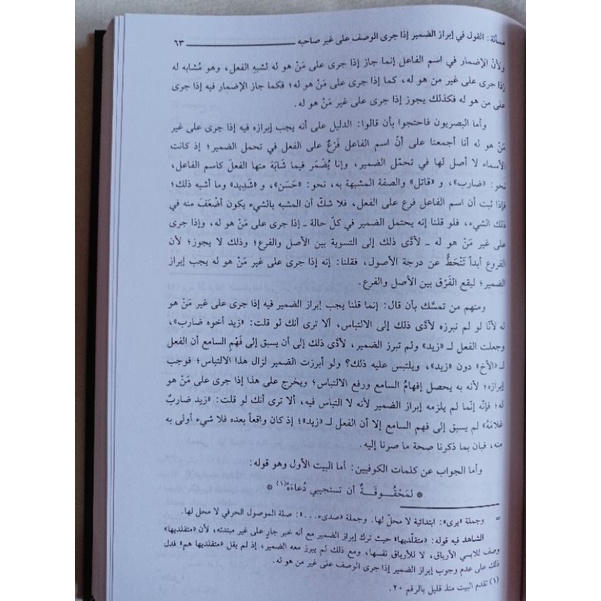 مسألة: القول في إبراز الضمير إذا جرى الوصف على غير صاحبه ٦٣
ولأنّ الإضمار في اسم الفاعل إنما جاز إذا جرى على مَنْ هو له لشبه الفعل، وهو مُشَابه له
إذا جرى على غير من هو له، كما إذا جرى على مَنْ هو له؛ فكما جاز الإضمار فيه إذا جرى
على من هو له فكذلك يجوز إذا جرى على غير مَنْ هو له.
وأما البصريون فاحتجوا بأن قالوا: الدليل على أنه يجب إبرازه فيه إذا جرى على غير
مَنْ هو له أنا أجمعنا على أنّ اسم الفاعل فَرْعٌ على الفعل في تحمل الضمير؛ إذا كانت
الأسماء لا أصل لها في تحمّل الضمير، وإنا يُضْمَر فيما شَابَهَ منها الفعلَ كاسم الفاعل،
نحو: «ضارب»، و «قاتل» والصفة المشبهة به، نحو: «حَسَن»، و «شَدِيد» وما أشبه ذلك؛
فإذا ثبت أن اسم الفاعل فرع على الفعل، فلا شكّ أن المشبه بالشيء يكون أضْعَفَ منه في
ذلك الشيء، فلو قلنا إنه يحتمل الضمير في كلّ حالة ـ إذا جرى على مَنْ هو له، وإذا جرى
على غير مَنْ هو له ـ لأدّى ذلك إلى التسوية بين الأصل والفرع؛ وذلك لا يجوز؛ لأن
الفروع أبداً تَنْحَطُّ عن درجة الأصول، فقلنا: إنه إذا جرى على غير مَنْ هو له يجب إبراز
الضمير؛ ليقع الفَرْق بين الأصل والفرع.
ومنهم من تمسَّك بأن قال: إنما قلنا يجب إبراز الضمير فيه إذا جرى على غير مَنْ هو
له لأنّا لو لم نبرزه لأدّى ذلك إلى الالتباس، ألا ترى أنك لو قلت: «زيد أخوه ضارب»،
وجعلت الفعل لـ «زيد» ولم تبرز الضمير، لأدّى ذلك إلى أن يسبق إلى فَهْم السامع أن الفعل
لـ «الأخ» دون «زيد»، ويلتبس عليه ذلك؟ ولو أبرزت الضمير لزال هذا الالتباس؛ فوجب
إبرازه؛ لأنه به يحصل إفهامُ السامع ورفع الالتباس؛ ويخرج على هذا إذا جرى على مَنْ هو
له؛ فإنّه إنّما لم يلزمه إبراز الضمير لأنه لا التباس فيه، ألا ترى أنك لو قلت: «زيد ضاربٌ
غلامَهُ» لم يسبق إلى فهم السامع إلا أن الفعل لـ «زيد»؛ إذ كان واقعاً بعده فلا شيء أولى به
منه، فبان بما ذكرنا صحة ما صرنا إليه.
وأما الجواب عن كلمات الكوفيين: أما البيت الأول وهو قوله:
* لمَحْقُوقَةٌ أن تستجيبي دُعَاءَهُ(١) *
= وجملة «يرى»: ابتدائية لا محلّ لها. وجملة «صدى»...»: صلة الموصول الحرفي لا محل لها.
الشاهد فيه قوله: «متقلّديها» حيث ترك إبراز الضمير مع أنه خبر جارٍ على غير مبتدئه، لأن «متقلديها»
وصف للابسي الأرباق، لا للأرباق نفسها، ومع ذلك لم يبرز معه الضمير؛ إذ لم يقل «متقلديها هم» فدل
ذلك على عدم وجوب إبراز الضمير إذا جرى الوصف على غير من هو له.
(١) تقدم البيت منذ قليل بالرقم ٢٠.